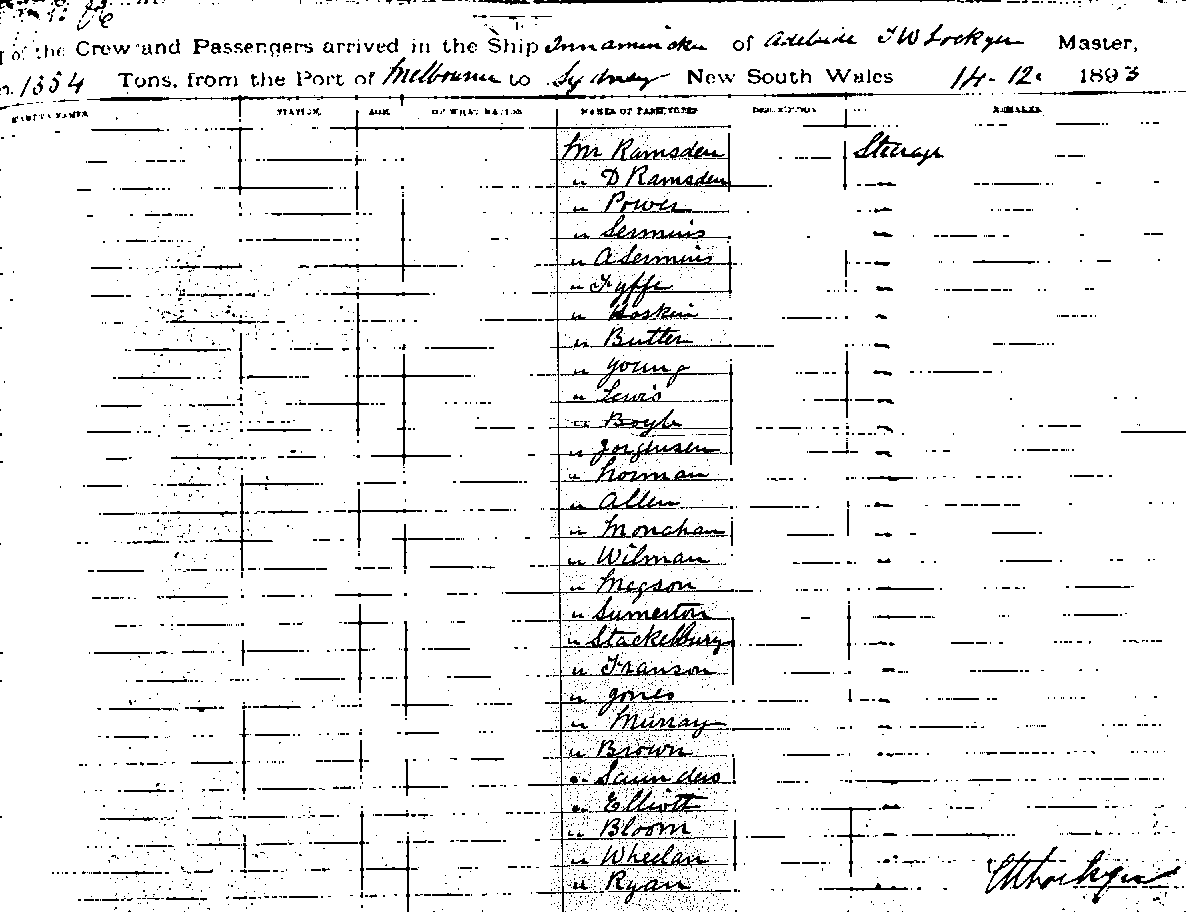 of the Crew and Passengers arrived in the Ship Innamincka of Adelaide T W Lockyer Master,
1354 Tons, from the Port of Melbourne to Sydney New South Wales 14-12. 1893
STATION. AGE. OF WHAT NATION NAMES OF PASSENGERS DESCRIPTION REMARKS
Mr Ramsden Steerage
" D Ramsden "
" Power "
" Sermuis "
" A Sermuis "
" Fyffe "
" Hoskin "
" Butler "
" Young "
" Lewis "
" Boyle "
" Jorgensen "
" Norman "
" Allen "
" Monahan "
" Wilman "
" Megson "
" Sumerton "
" Stackelburg "
" Franson "
" Jones "
" Murray "
" Brown "
" Saunders "
" Elliott "
" Bloom "
" Wheelan "
" Ryan "